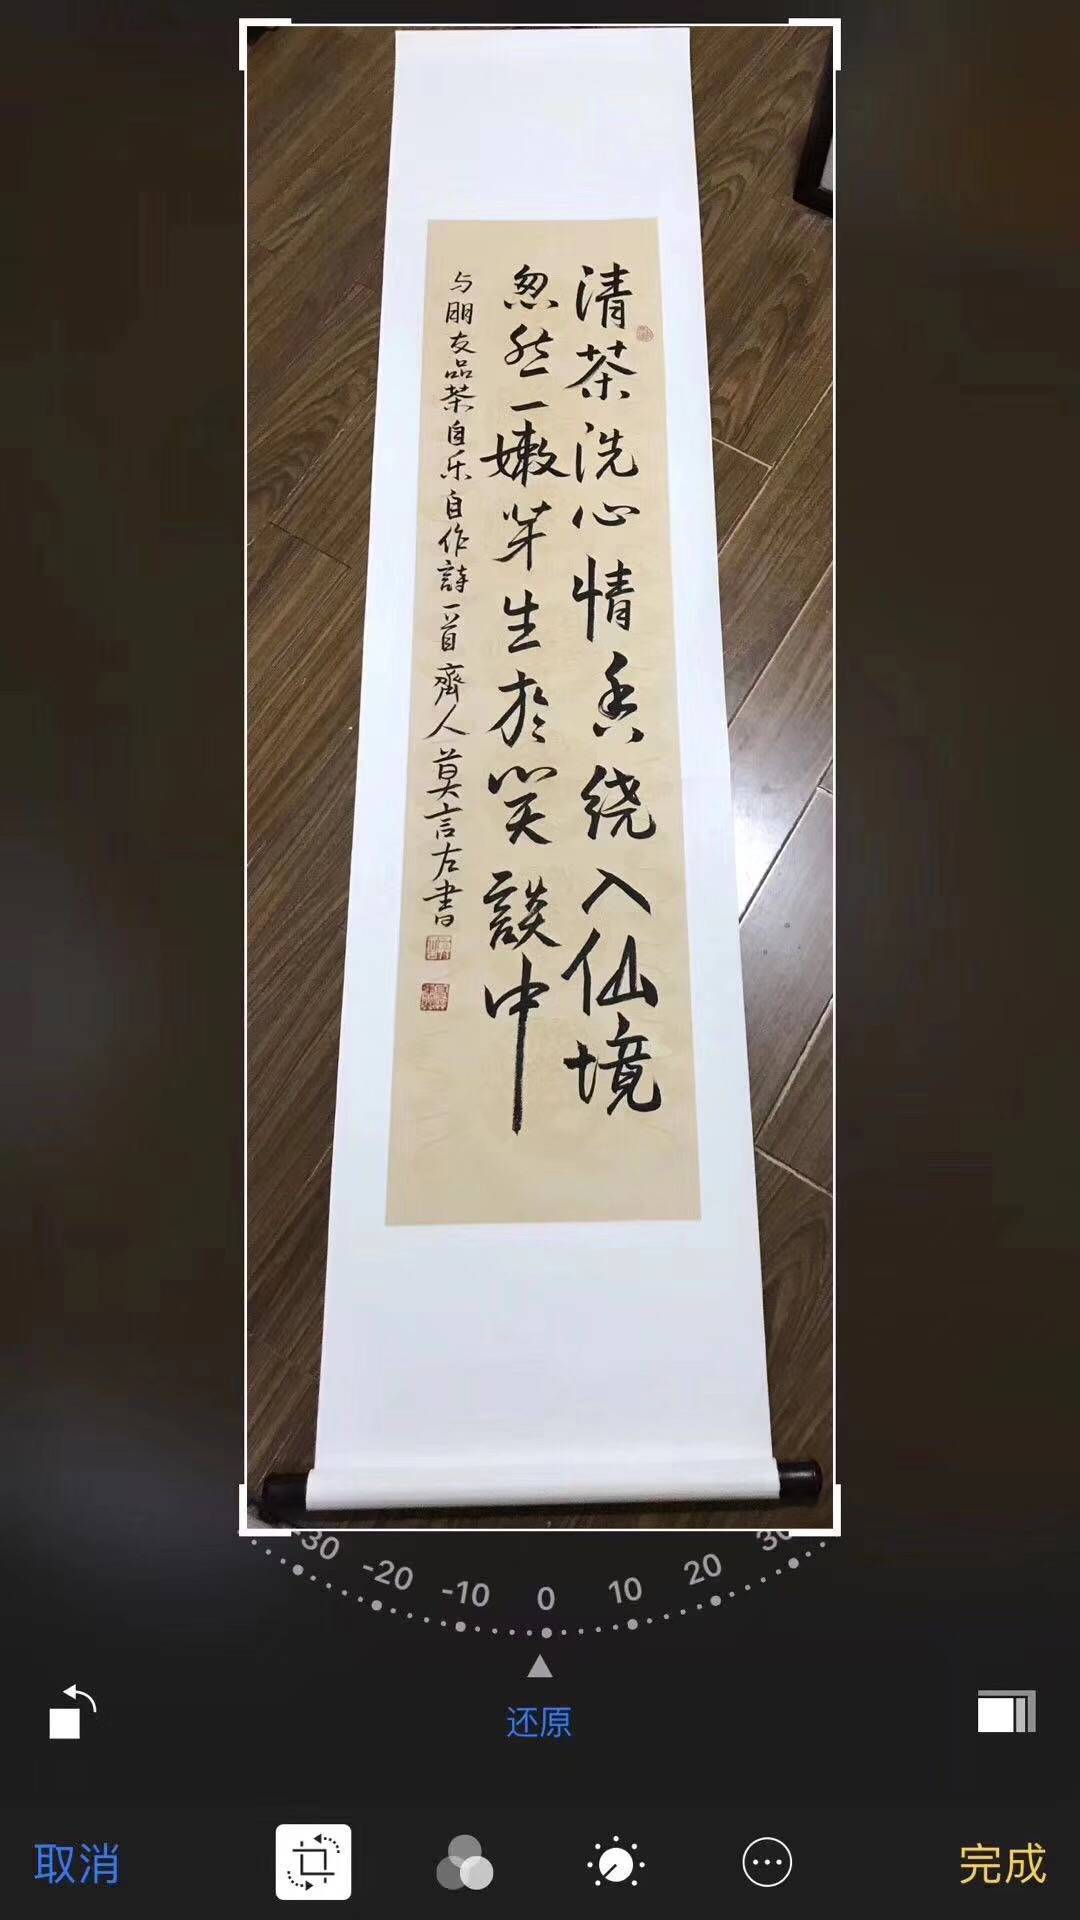 清茶洗心情香绕入仙境
忽然一嫩芽生於笑談中
与朋友品茶自乐自作詩一首齊人莫言左書
-30
-20
-10
0
10
20
30
还原
取消
完成